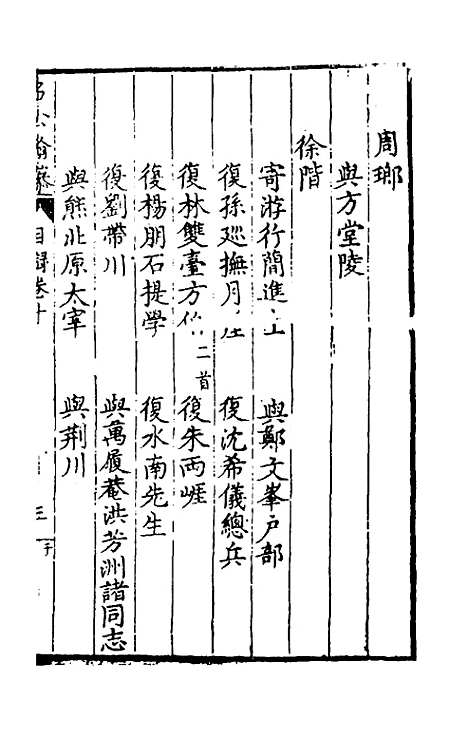 周瑯
與方堂陵
徐階
寄游行簡進士　與鄭文峯戶部
復孫巡撫月　復沈希儀總兵
復林雙臺方伯二首　復朱两崖
復楊朋石提學　復水南先生
復劉帶川　與萬履菴洪芳洲諸同志
與熊北原太宰　與荆川
名公翰藻　目錄卷十